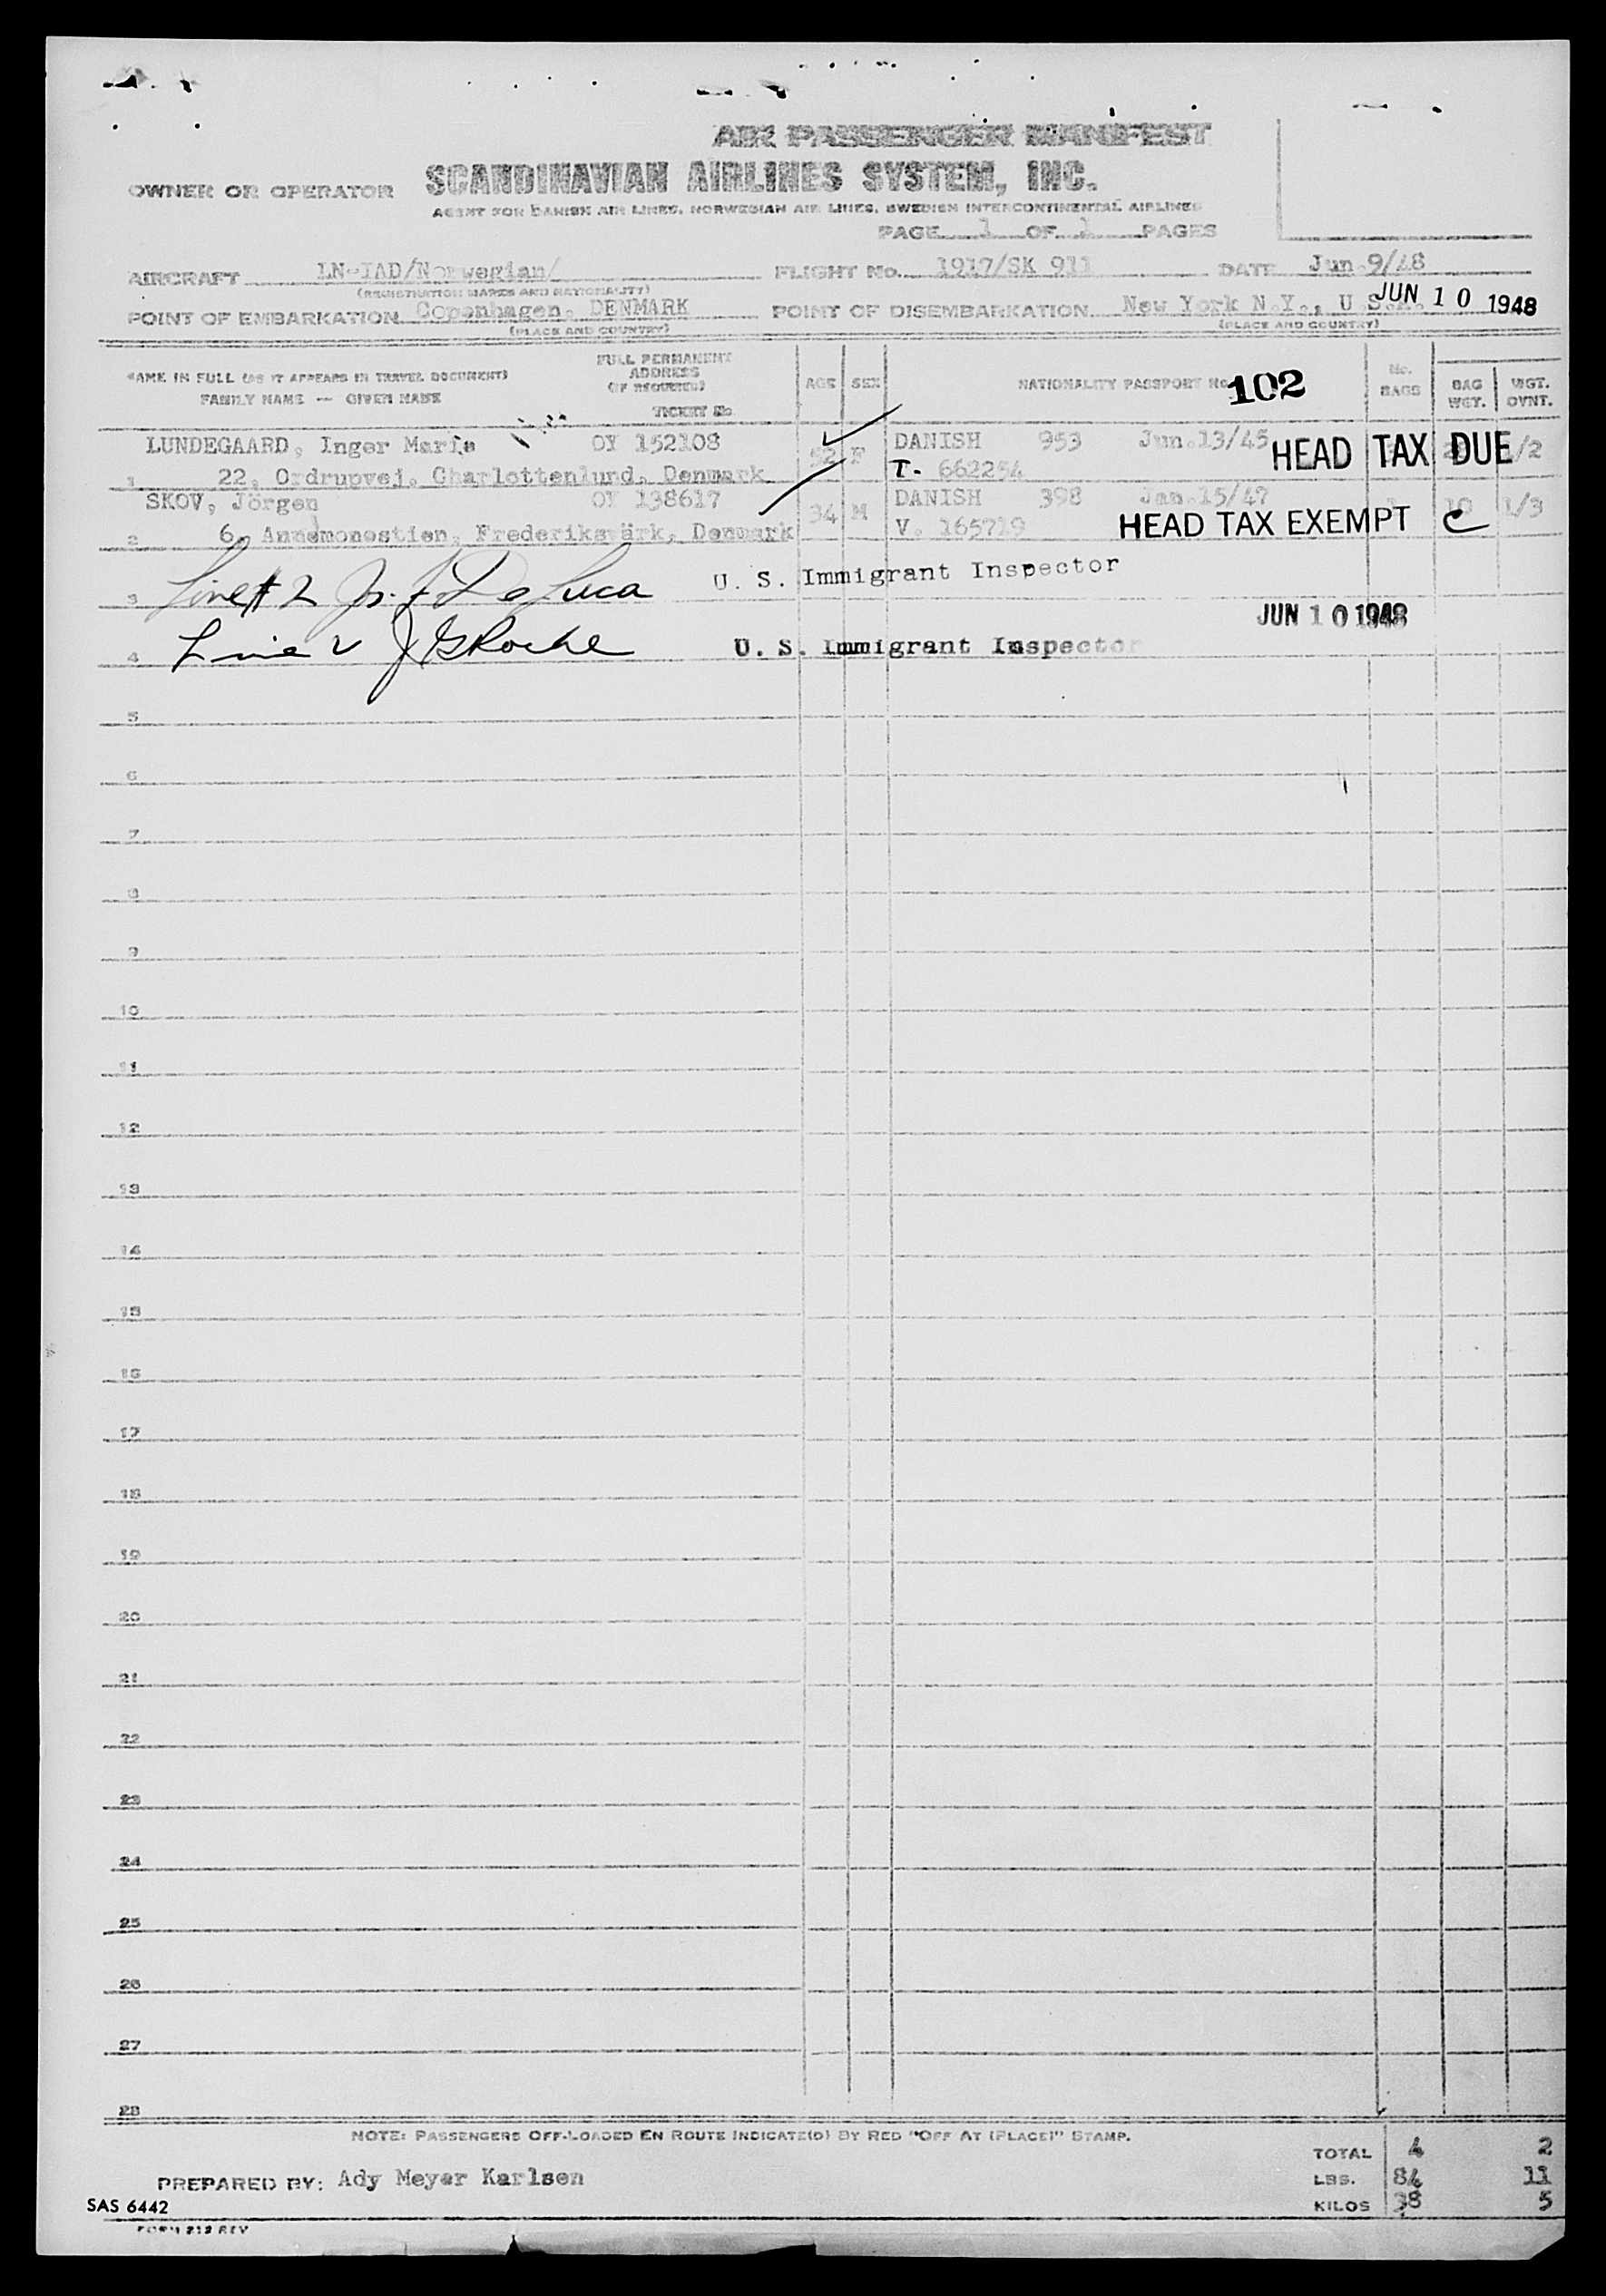 AIR PASSENGER MANIFEST
OWNER OR OPERATOR SCANDINAVIAN AIRLINES SYSTEM, INC.
AGENT FOR DANISH AIR LINES, NORWEGIAN AIR LINES, SWEDISH INTERCONTINENTAL AIRLINES
PAGE 1 OF 1 PAGES
AIRCRAFT LN-IAD/Norwegian/ FLIGHT No. 1917/SK 911 DATE Jun.9/48
(REGISTRATION MARKS AND NATIONALITY)
POINT OF EMBARKATION Copenhagen, DENMARK POINT OF DISEMBARKATION New York N.Y., U S.A. JUN 10 1948
(PLACE AND COUNTRY) (PLACE AND COUNTRY)
NAME IN FULL (AS IT APPEARS IN TRAVEL DOCUMENT) FULL PERMANENT ADDRESS (IF REQUIRED) AGE SEX NATIONALITY PASSPORT No. 102 No. BAGS BAG WGT. WGT. OVNT.
FAMILY NAME — GIVEN NAME TICKET No
LUNDEGAARD, Inger Marie OY 152108 52 F DANISH 953 Jun.13/45 HEAD TAX DUE /2
1 22, Ordrupvej, Charlottenlund, Denmark T- 662254
SKOV, Jörgen OY 138617 34 M DANISH 398 Jan.15/47 1 10 1/3
2 6, Annemonestien, Frederiksværk, Denmark V. 165719 HEAD TAX EXEMPT C
3 Line # 2 De Luca U. S. Immigrant Inspector
JUN 10 1948
4 Line J G Roche U. S. Immigrant Inspector
5
6
7
8
9
10
11
12
13
14
15
16
17
18
19
20
21
22
23
24
25
26
27
28
NOTE: PASSENGERS OFF-LOADED EN ROUTE INDICATE(D) BY RED "OFF AT (PLACE)" STAMP.
TOTAL 4 2
PREPARED BY: Ady Meyer Karlsen LBS. 84 11
SAS 6442 KILOS 38 5
FORM 212 REV